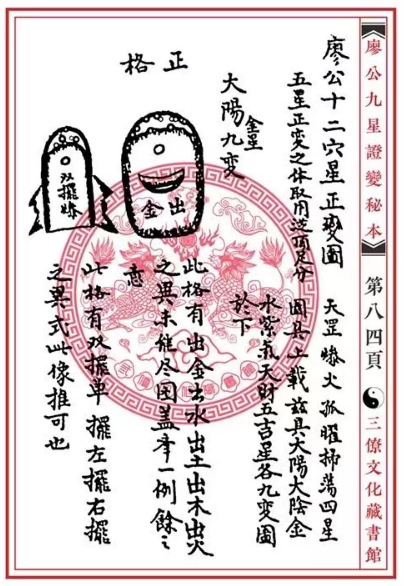 《廖公九星證變秘本》
第八四頁
三僚文化藏書館
廖公十二穴星正變圖
五星正變之体取用逆頑足分
天罡燥火孤曜掃蕩四星
圖具上載茲具大陽大陰金
水紫氣天財五吉星各九變圖
於下
金星
大陽九變
正格
出金
双擺燥
此格有出金出水出土出木出火
之異未能尽图盖聿一例餘之
此格有双擺单擺左擺右擺
之異式此像推可也